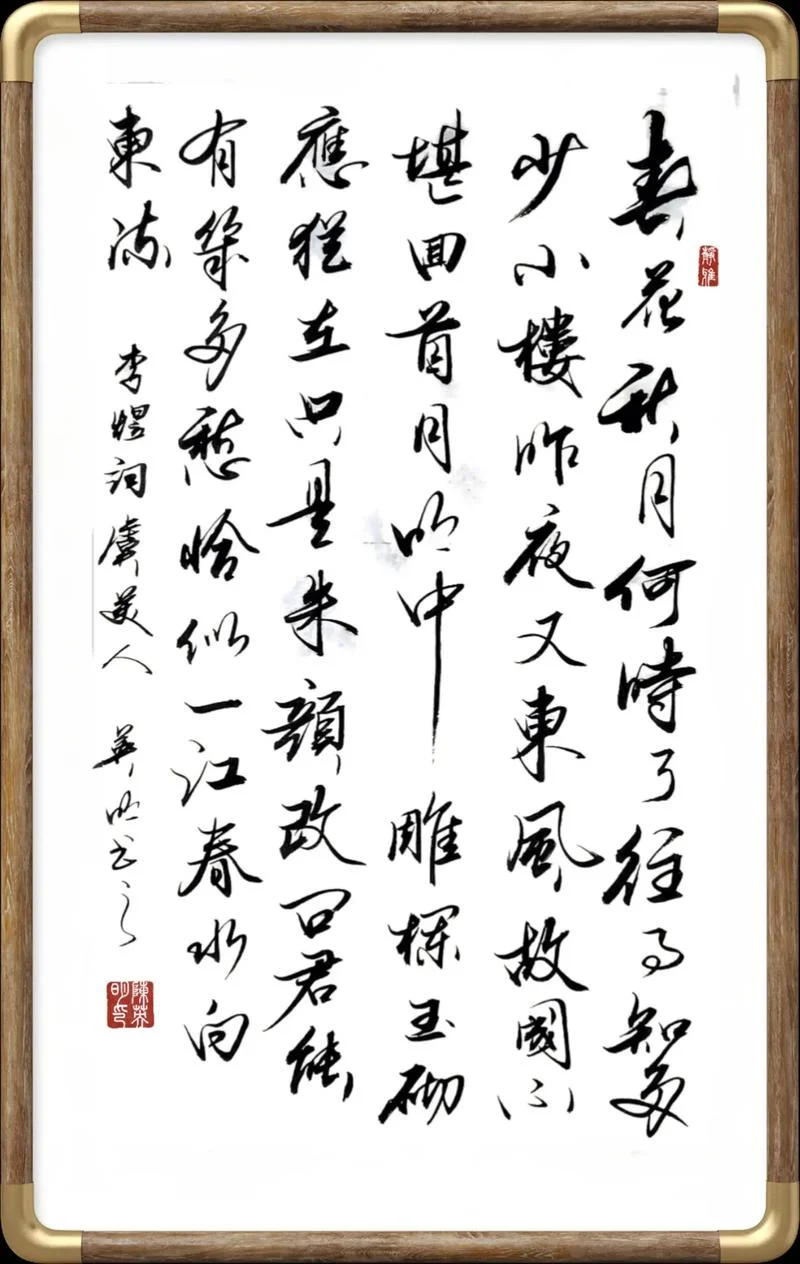 春花秋月何時了往事知多
少小樓昨夜又東風故國不
堪回首月明中雕欄玉砌
應猶在只是朱顏改問君能
有幾多愁恰似一江春水向
東流
李煜詞虞美人 英明書之
靜雅
陳英明印